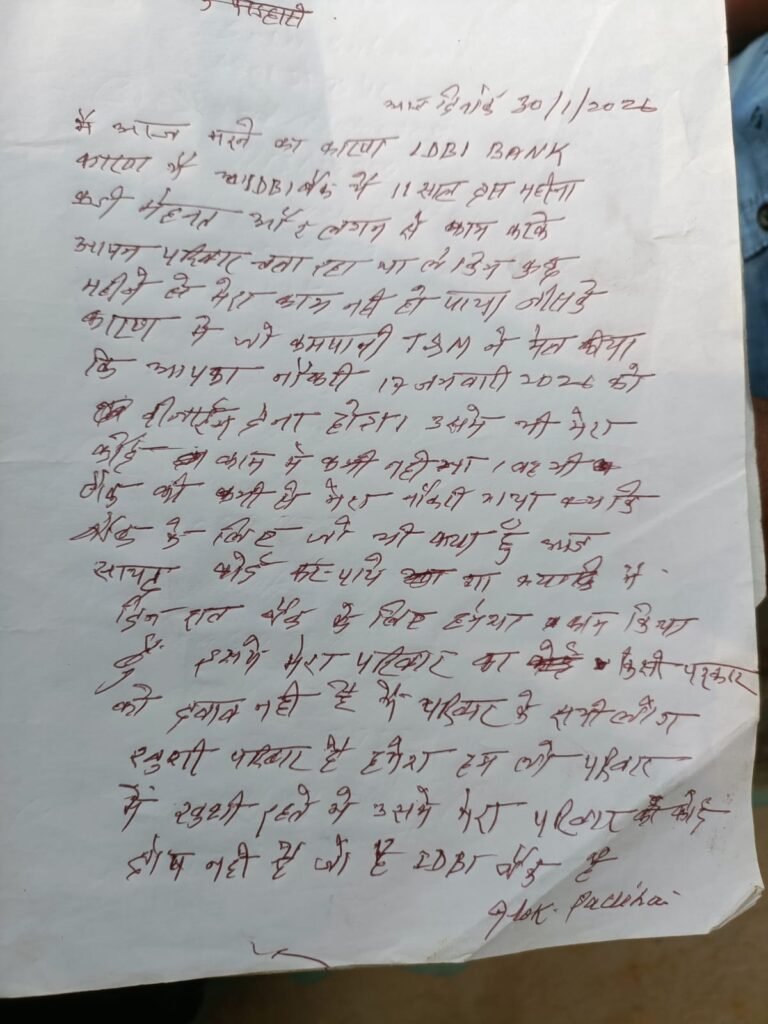 आज दिनांक 30/1/2026
मै आज मरने का कारण IDBI BANK
कारण मैं IDBI बैंक में 11 साल दस महीना
कडी मेहनत और लगन से काम करके
आपन परिवार चला रहा था लेकिन कुछ
महीने से मेरा काम नही हो पाया जीसके
कारण मे जो कमपानी TSM ने मेल कीया
कि आपका नौकरी 17 जनवारी 2026 को
रीजाईन देना होगा। उसमे भी मेरा
कोई काम में कमी नही था। वह भी
बैंक की कमी से मेरा नौकरी गया क्याकि
बैंक के लिए जो भी कया हुँ
सायद कोई कर पाये गा क्याकि मैं
दिन रात बैंक के लिए हमेशा काम किया
हुँ इसमे मेरा परिवार का किसी परकार
को दवाव नही है मै परिवार के सभी लोग
खुशी परिवार है हमेशा हम लोग परिवार
मै खुशी रहते मे उसमे मेरा परिवार के कोई
दोष नही है जो है IDBI बैंक है
Alok. Padihari